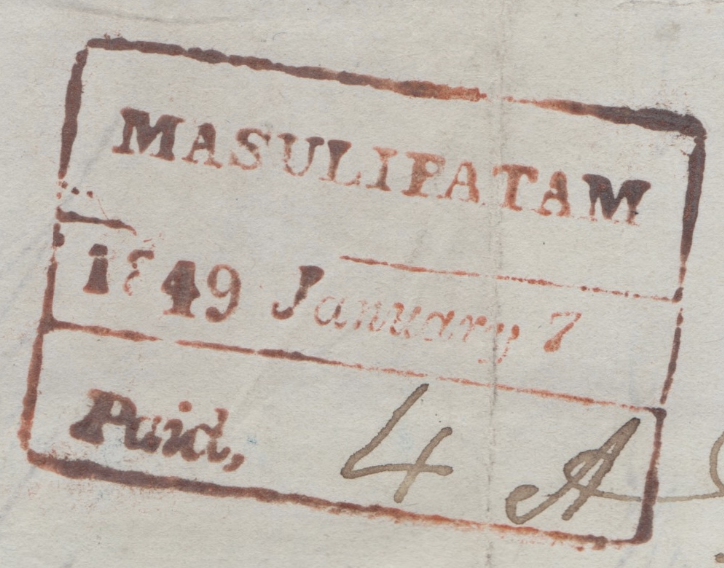 MASULIPATAM
1849 January 7
Paid, 4 A